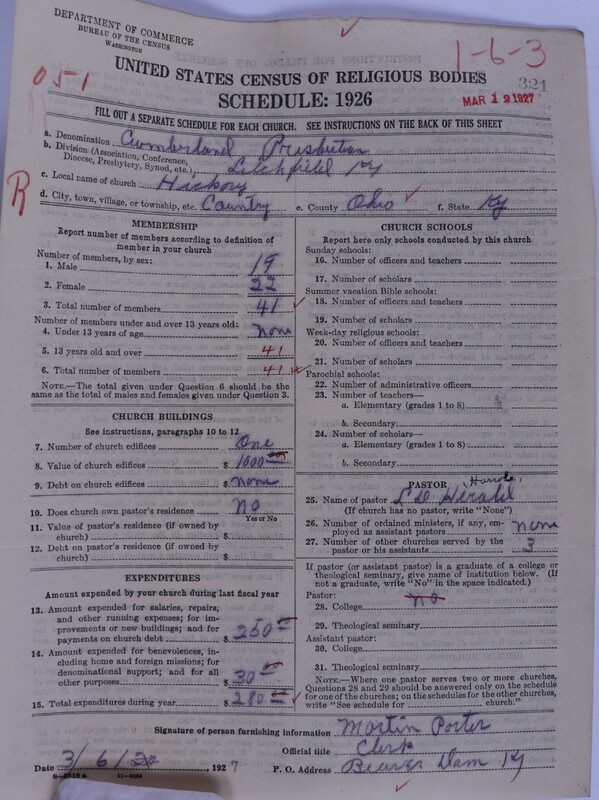 DEPARTMENT OF COMMERCE
BUREAU OF THE CENSUS
WASHINGTON
1-6-3
05-1
321
UNITED STATES CENSUS OF RELIGIOUS BODIES
MAR 12 1927
SCHEDULE: 1926
FILL OUT A SEPARATE SCHEDULE FOR EACH CHURCH. SEE INSTRUCTIONS ON THE BACK OF THIS SHEET
R
a. Denomination Cumberland Presbyterian
b. Division (Association, Conference, Diocese, Presbytery, Synod, etc.) Litchfield Ky
c. Local name of church Hickory
d. City, town, village, or township, etc. Country e. County Ohio f. State Ky
MEMBERSHIP
Report number of members according to definition of
member in your church
Number of members, by sex:
1. Male 19
2. Female 22
3. Total number of members 41
Number of members under and over 13 years old:
4. Under 13 years of age none
5. 13 years old and over 41
6. Total number of members 41
NOTE.—The total given under Question 6 should be
the same as the total of males and females given under Question 3.
CHURCH BUILDINGS
See instructions, paragraphs 10 to 12
7. Number of church edifices One
8. Value of church edifices $ 1000
9. Debt on church edifices $ none
10. Does church own pastor's residence? No
Yes or No
11. Value of pastor's residence (if owned by
church) $
12. Debt on pastor's residence (if owned by
church) $
EXPENDITURES
Amount expended by your church during last fiscal year
13. Amount expended for salaries, repairs,
and other running expenses; for im-
provements or new buildings; and for
payments on church debt $ 250
14. Amount expended for benevolences, in-
cluding home and foreign missions; for
denominational support; and for all
other purposes $ 30
15. Total expenditures during year $ 280
CHURCH SCHOOLS
Report here only schools conducted by this church
Sunday schools:
16. Number of officers and teachers
17. Number of scholars
Summer vacation Bible schools:
18. Number of officers and teachers
19. Number of scholars
Week-day religious schools:
20. Number of officers and teachers
21. Number of scholars
Parochial schools:
22. Number of administrative officers
23. Number of teachers—
a. Elementary (grades 1 to 8)
b. Secondary
24. Number of scholars—
a. Elementary (grades 1 to 8)
b. Secondary
PASTOR
25. Name of pastor
(If church has no pastor, write "None")
26. Number of ordained ministers, if any, em-
ployed as assistant pastors none
27. Number of other churches served by the
pastor or his assistants 3
If pastor (or assistant pastor) is a graduate of a college or
theological seminary, give name of institution below. (If
not a graduate, write "No" in the space indicated.)
Pastor:
28. College no
29. Theological seminary
Assistant pastor:
30. College
31. Theological seminary
NOTE.—Where one pastor serves two or more churches,
Questions 28 and 29 should be answered only on the schedule
for one of the churches; on the schedules for the other churches,
write "See schedule for church."
Signature of person furnishing information Martin Porter
Official title Clerk
Date 3/6/ , 1927 P. O. Address Beaver Dam Ky